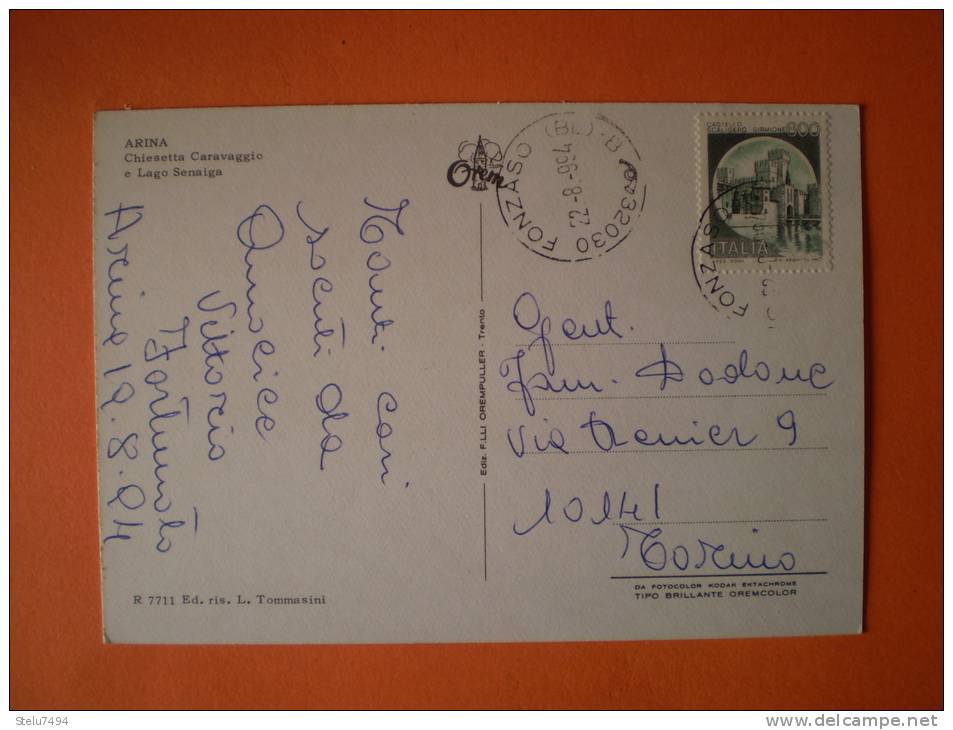 ARINA
Chiesetta Caravaggio
e Lago Senaiga
Orem
Tanti cari
saluti da
Vittorio
Fortunato
Arina 19.8.94
R 7711 Ed. ris. L. Tommasini
Ediz. F.LLI OREMPULLER - Trento
32030 FONZASO (BL) - B
22-8-994
CASTELLO
SCALIGERO SIRMIONE 800
ITALIA
FONZASO
Gent.
Fam. Dadone
Via Renier 9
10141
Torino
DA FOTOCOLOR KODAK EKTACHROME
TIPO BRILLANTE OREMCOLOR
Stelu7494
www.delcampe.net